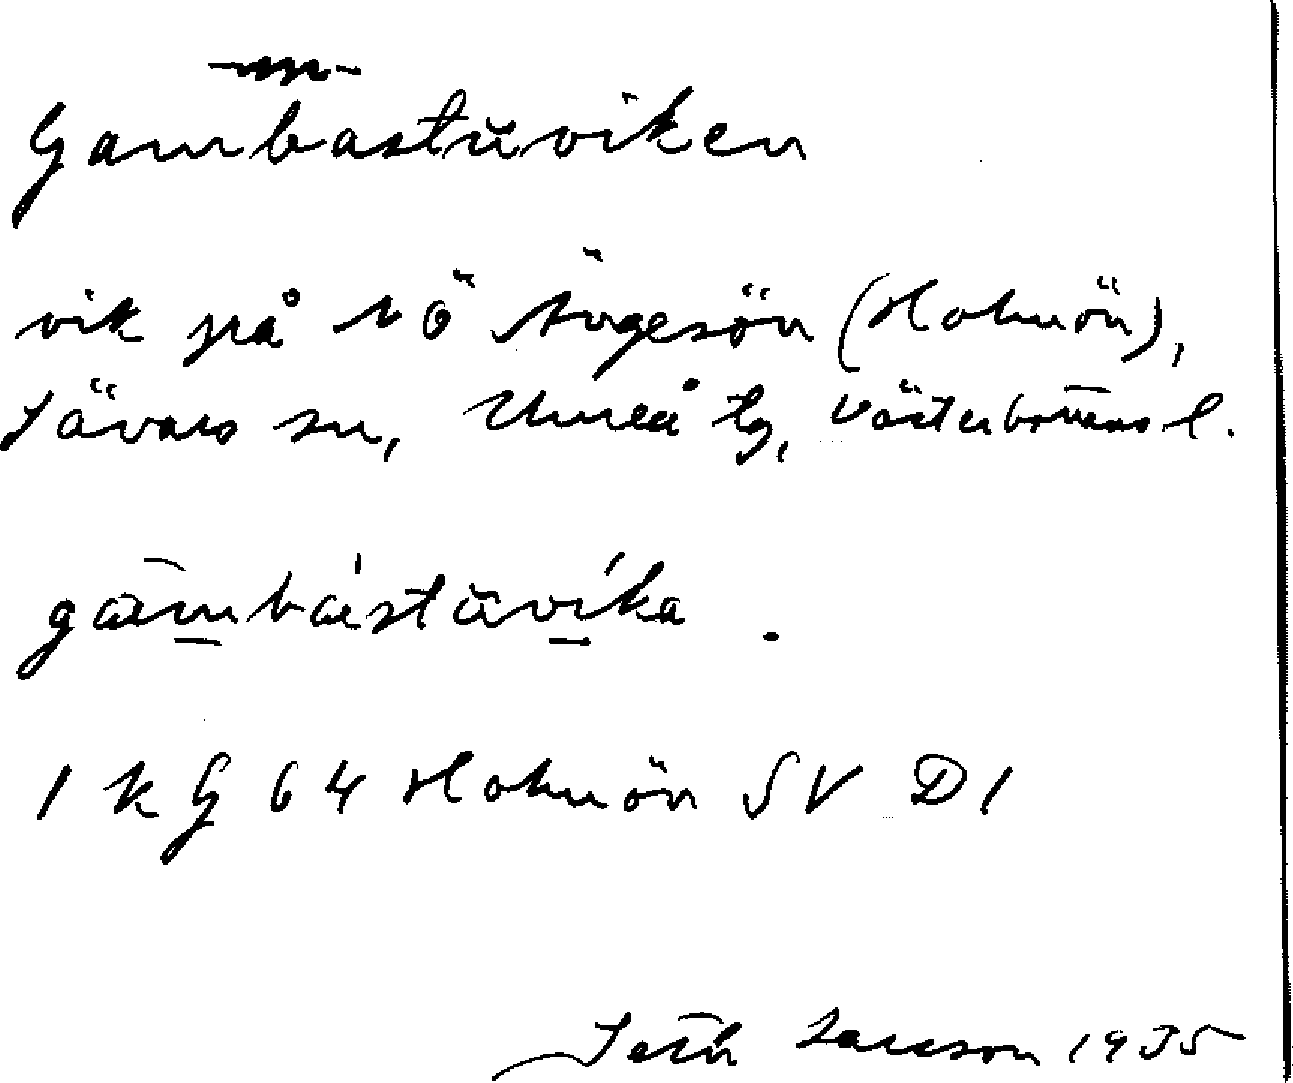 Gambastuviken
vik på NÖ Ängesön (Holmön),
Sävars sn, Umeå tg, Västerbottens l.
1 KG 64 Holmön SV D1
Seth Larsson 1935